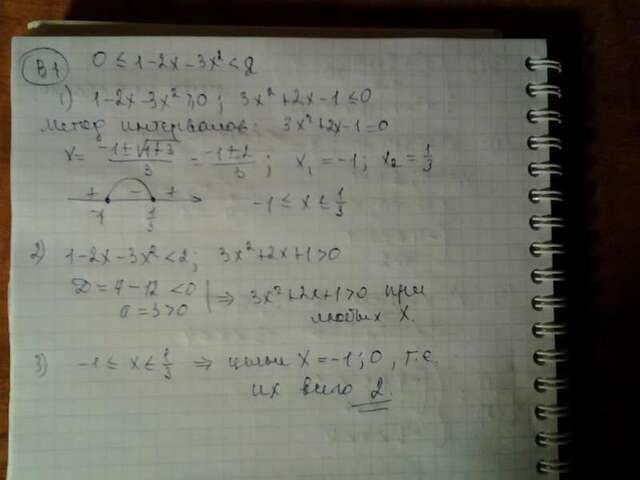 В1 0 ≤ 1-2x-3x² < 2
1) 1-2x-3x² ≥ 0 ; 3x²+2x-1 ≤ 0
Метод интервалов: 3x²+2x-1=0
x = (-1±√1+3)/3 = (-1±2)/3 ; x₁ = -1 ; x₂ = 1/3
+ - +
-1 1/3 -1 ≤ x ≤ 1/3
2) 1-2x-3x² < 2 ; 3x²+2x+1 > 0
D = 4-12 < 0 | ⇒ 3x²+2x+1 > 0 при
a = 3 > 0 любых x.
3) -1 ≤ x ≤ 1/3 ⇒ целые x = -1; 0, т.е.
их всего 2.